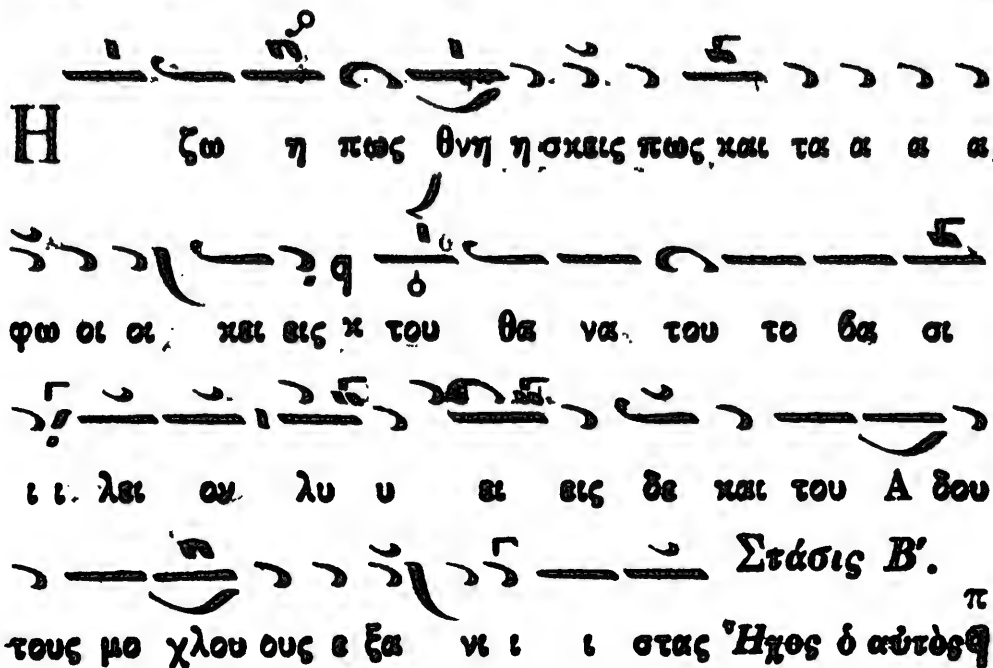 Η ζω η πως θνη η σκεις πως και τα α α α
φω οι οι κει εις κ του θα να του το βα σι
ι ι λει ου λυ υ ει εις δε και του Α δου
Στάσις Β'.
τους μο χλου ους ε ξα νι ι ι στας Ἦχος ὁ αὐτὸς π q